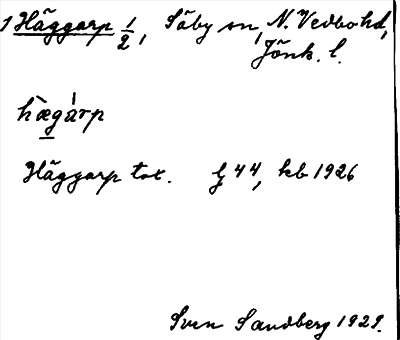 1 Häggarp 1/2, Säby sn, N. Vedbo hd,
Jönk. l.
hæ̀gárp
Häggarp tot. f 44, kb 1926
Sven Sandberg 1929.